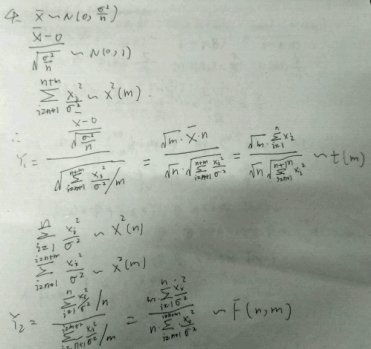 4. X̄ ~ N(0, σ²/n)
(X̄-0)/√(σ²/n) ~ N(0,1)
∑_{i=n+1}^{n+m} Xᵢ²/σ² ~ X²(m).
∴ Y₁ = ((X̄-0)/√(σ²/n)) / √(∑_{i=n+1}^{n+m} Xᵢ²/σ² /m) = (√m · X̄ · n) / (√n · √(∑_{i=n+1}^{n+m} Xᵢ²/σ²)) = (√m · ∑_{i=1}^{n} Xᵢ) / (√n √(∑_{i=n+1}^{n+m} Xᵢ²)) ~ t(m)
∑_{i=1}^{n} Xᵢ²/σ² ~ X²(n)
∑_{i=n+1}^{n+m} Xᵢ²/σ² ~ X²(m)
Y₂ = (∑_{i=1}^{n} Xᵢ²/σ² /n) / (∑_{i=n+1}^{n+m} Xᵢ²/σ² /m) = (m ∑_{i=1}^{n} Xᵢ²/σ²) / (n · ∑_{i=n+1}^{n+m} Xᵢ²/σ²) ~ F(n,m)